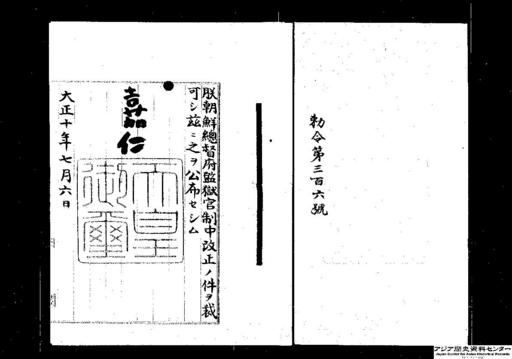 勅令第三百六號
朕朝鮮總督府監獄官制中改正ノ件ヲ裁
可シ茲ニ之ヲ公布セシム
嘉仁
天皇
御璽
大正十年七月六日
アジア歴史資料センター
Japan Center for Asian Historical Records